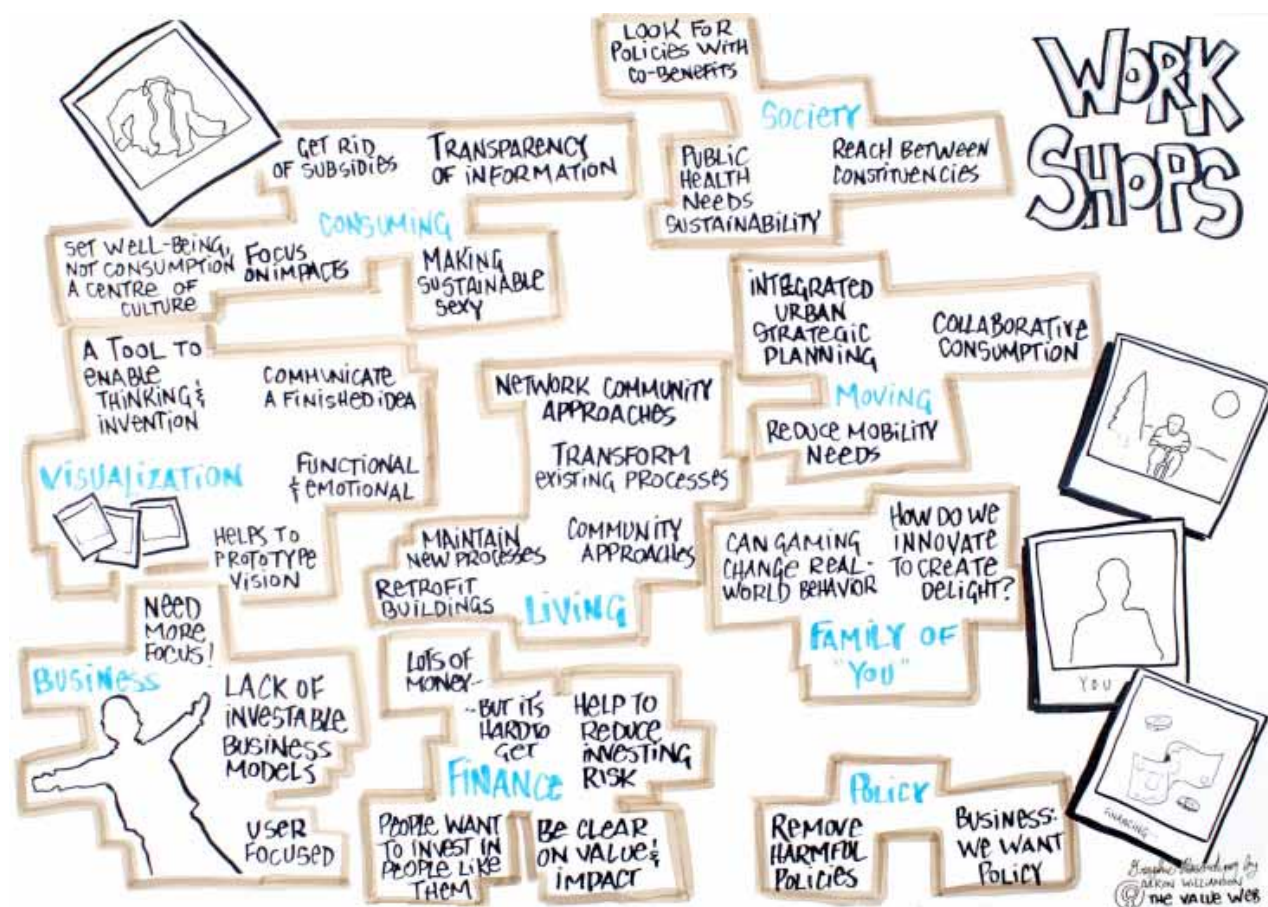 WORK
SHOPS
LOOK FOR
POLICIES WITH
CO-BENEFITS
SOCIETY
PUBLIC
HEALTH
NEEDS
SUSTAINABILITY
REACH BETWEEN
CONSTITUENCIES
GET RID
OF SUBSIDIES
TRANSPARENCY
OF INFORMATION
CONSUMING
SET WELL-BEING,
NOT CONSUMPTION
A CENTRE OF
CULTURE
FOCUS
ON IMPACTS
MAKING
SUSTAINABLE
SEXY
INTEGRATED
URBAN
STRATEGIC
PLANNING
COLLABORATIVE
CONSUMPTION
MOVING
REDUCE MOBILITY
NEEDS
A TOOL TO
ENABLE
THINKING &
INVENTION
COMMUNICATE
A FINISHED IDEA
VISUALIZATION
FUNCTIONAL
& EMOTIONAL
HELPS TO
PROTOTYPE
VISION
NETWORK COMMUNITY
APPROACHES
TRANSFORM
EXISTING PROCESSES
MAINTAIN
NEW PROCESSES
COMMUNITY
APPROACHES
RETROFIT
BUILDINGS
LIVING
CAN GAMING
CHANGE REAL-
WORLD BEHAVIOR
HOW DO WE
INNOVATE
TO CREATE
DELIGHT?
FAMILY OF
"YOU"
YOU
NEED
MORE
FOCUS!
BUSINESS
LACK OF
INVESTABLE
BUSINESS
MODELS
USER
FOCUSED
LOTS OF
MONEY~
~BUT IT'S
HARD TO
GET
HELP TO
REDUCE
INVESTING
RISK
FINANCE
PEOPLE WANT
TO INVEST IN
PEOPLE LIKE
THEM
BE CLEAR
ON VALUE &
IMPACT
POLICY
REMOVE
HARMFUL
POLICIES
BUSINESS:
WE WANT
POLICY
FINANCING...
Graphic Recording by
AARON WILLIAMSON
THE VALUE WEB